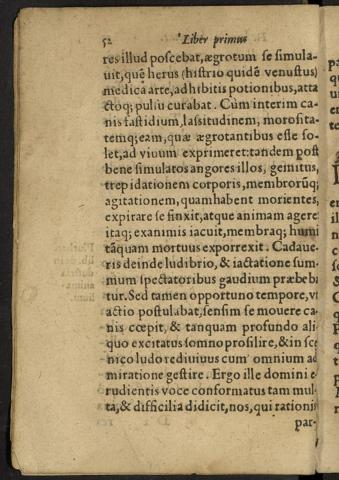 52 Liber primus
res illud poscebat, ægrotum se simula-
uit, quẽ herus (histrio quidẽ venustus)
medica arte, adhibitis potionibus, atta
ctoq; pulsu curabat. Cùm interim ca-
nis fastidium, lassitudinem, morosita-
temq; eam, quæ ægrotantibus esse so-
let, ad viuum exprimeret: tandem post
bene simulatos angores illos, gemitus,
trepidationem corporis, membrorũq;
agitationem, quam habent morientes,
expirare se finxit, atque animam agere
itaq; exanimis iacuit, membraq; humi
tãquam mortuus exporrexit. Cadaue-
ris deinde ludibrio, & iactatione sum-
mum spectatoribus gaudium præbeba
tur. Sed tamen opportuno tempore, vt
actio postulabat, sensim se mouere ca-
nis cœpit, & tanquam profundo ali-
quo excitatus somno prosilire, & in sce
nico ludo rediuiuus cum omnium ad
miratione gestire. Ergo ille domini e-
rudientis voce conformatus tam mul-
ta, & difficilia didicit, nos, qui rationis
par-